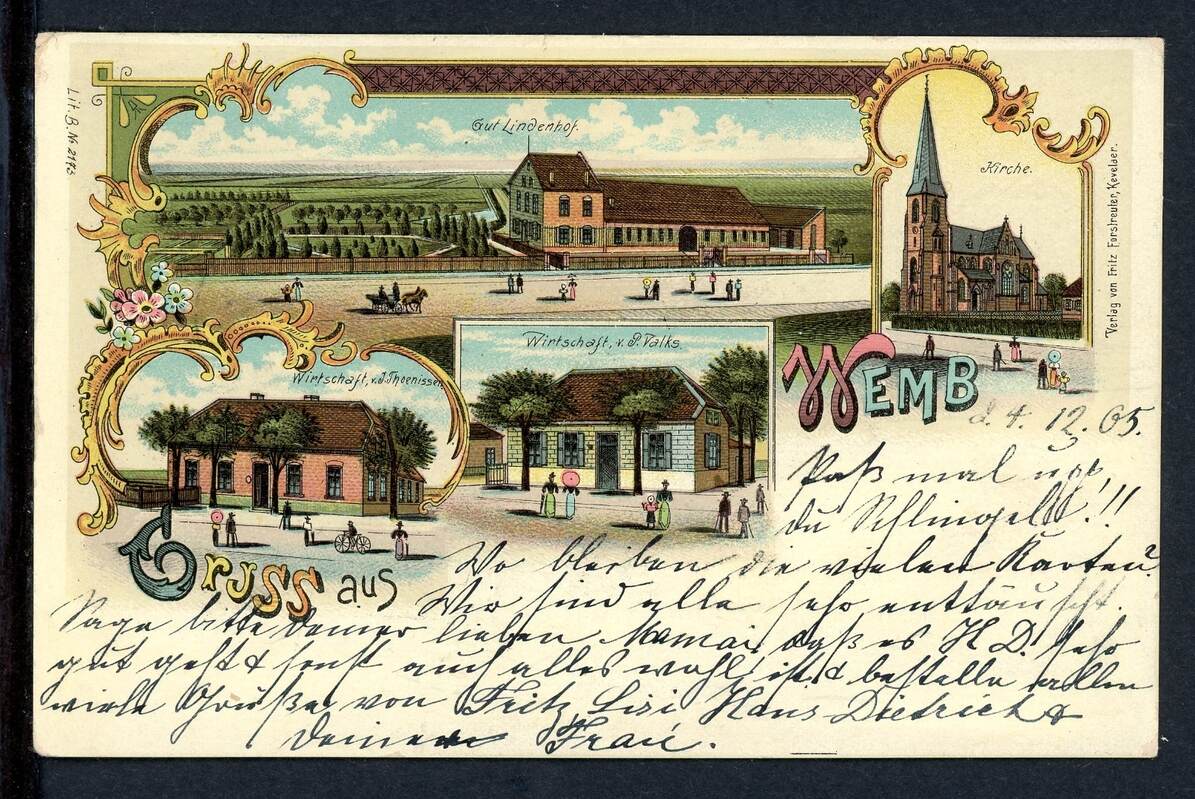 Lit. B. No 2193
Gut Lindenhof.
Kirche.
Verlag von Fritz Forstreuter, Kevelaer.
Wirtschaft, v. J. Thoenissen
Wirtschaft, v. P. Valks.
Gruss aus
Wemb
d. 4. 12. 05.
Paß mal up,
du Schlingel!!!
Wo bleiben die vielen Karten?
Wir sind alle sehr enttäuscht.
Sage bitte Deiner lieben Mama, daß es H. D. sehr
gut geht & sonst auch alles wohl ist & bestelle allen
viele Grüße von Fritz, Lisi, Hans Dietrich &
Deiner Frau.